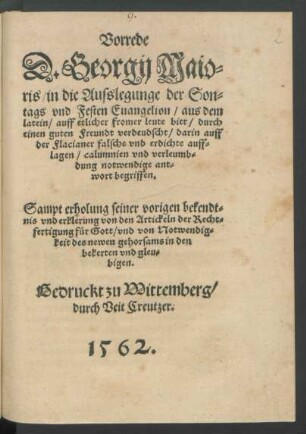 Vorrede
D. Georgij Maio-
ris/in die Ausslegunge der Son-
tags vnd Festen Euangelion / aus dem
latein/ auff etlicher fromer leute bitt/ durch
einen guten Freundt verdeudscht/ darin auff
der Flacianer falsche vnd erdichte auff-
lagen/ calumnien vnd verleumb-
dung notwendige ant-
wort begriffen.
Sampt erholung seiner vorigen bekendt-
nis vnd erklerung von den Artickeln der Recht-
fertigung für Gott/vnd von Notwendig-
keit des newen gehorsams in den
bekerten vnd gleu-
bigen.
Gedruckt zu Wittemberg/
durch Veit Creutzer.
1562.